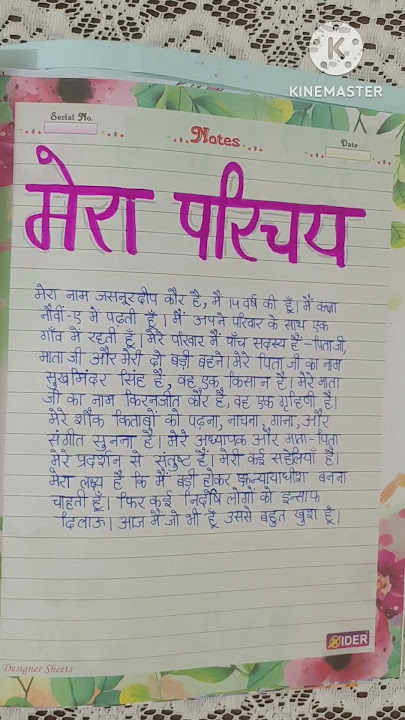 KINEMASTER
Serial No.
Notes
Date
मेरा परिचय
मेरा नाम जसनूरदीप कौर है, मैं 14 वर्ष की हूँ। मैं कक्षा
नौवीं-ए में पढ़ती हूँ। मैं अपने परिवार के साथ एक
गाँव में रहती हूँ। मेरे परिवार में पाँच सदस्य हैं - पिता जी,
माता जी और मेरी दो बड़ी बहने। मेरे पिता जी का नाम
सुखमिंदर सिंह है, वह एक किसान है। मेरे माता
जी का नाम किरनजीत कौर है, वह एक गृहिणी है।
मेरे शौंक किताबों को पढ़ना, नाचना, गाना, और
संगीत सुनना है। मेरे अध्यापक और माता-पिता
मेरे प्रदर्शन से संतुष्ट हैं। मेरी कई सहेलियाँ है।
मेरा लक्ष्य है कि मैं बड़ी होकर न्यायाधीश बनना
चाहती हूँ। फिर कई निर्दोष लोगों को इन्साफ
दिलाऊ। आज मैं जो भी हूँ उससे बहुत खुश हूँ।
IDER
Designer Sheets